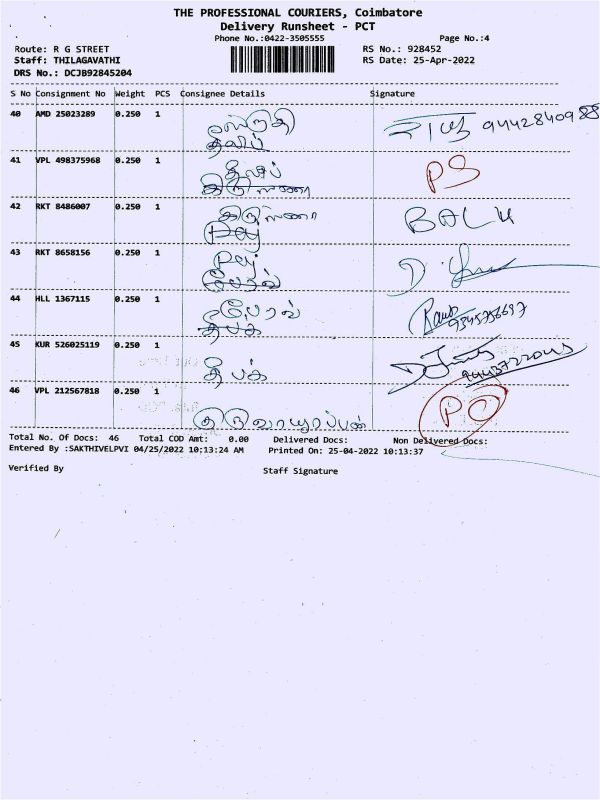 THE PROFESSIONAL COURIERS, Coimbatore
Delivery Runsheet - PCT
Phone No.:0422-3505555 Page No.:4
Route: R G STREET RS No.: 928452
Staff: THILAGAVATHI RS Date: 25-Apr-2022
DRS No.: DCJB92845204
S No Consignment No Weight PCS Consignee Details Signature
40 AMD 25023289 0.250 1
9442840988
41 VPL 498375968 0.250 1 PS
42 RKT 8486007 0.250 1 கிருஸ்ணா BALU
43 RKT 8658156 0.250 1
44 HLL 1367115 0.250 1
45 KUR 526025119 0.250 1
தீபக்
46 VPL 212567818 0.250 1 PO
Total No. Of Docs: 46 Total COD Amt: 0.00 Delivered Docs: Non Delivered Docs:
Entered By :SAKTHIVELPVI 04/25/2022 10:13:24 AM Printed On: 25-04-2022 10:13:37
Verified By Staff Signature